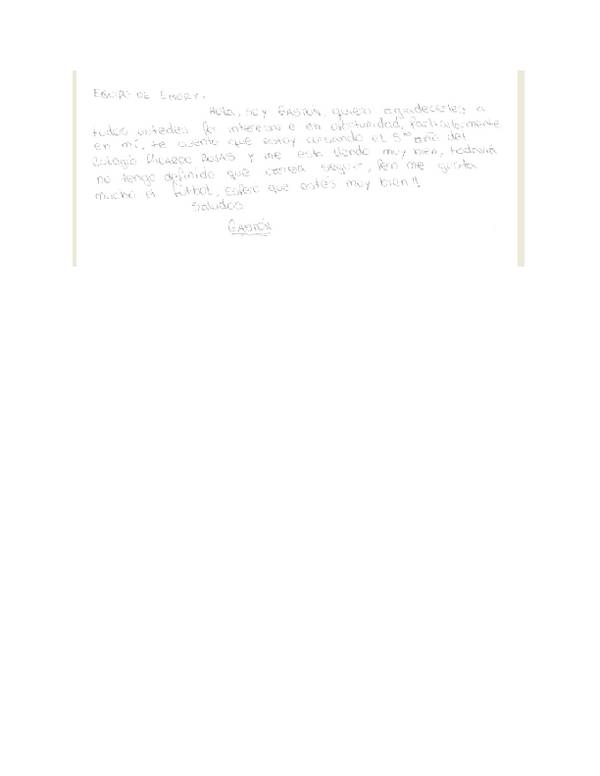 EQUIPO DE EMORY.
Hola, soy GASTÓN, quiero agradecerles a
todos ustedes por interesarse en oportunidad, particularmente
en mí, te cuento que estoy cursando el 5to año del
Colegio Ricardo ROJAS y me esta yendo muy bien, todavia
no tengo definido que carrera seguir, pero me gusta
mucho el futbol, espero que estés muy bien!!
Saludos
GASTÓN